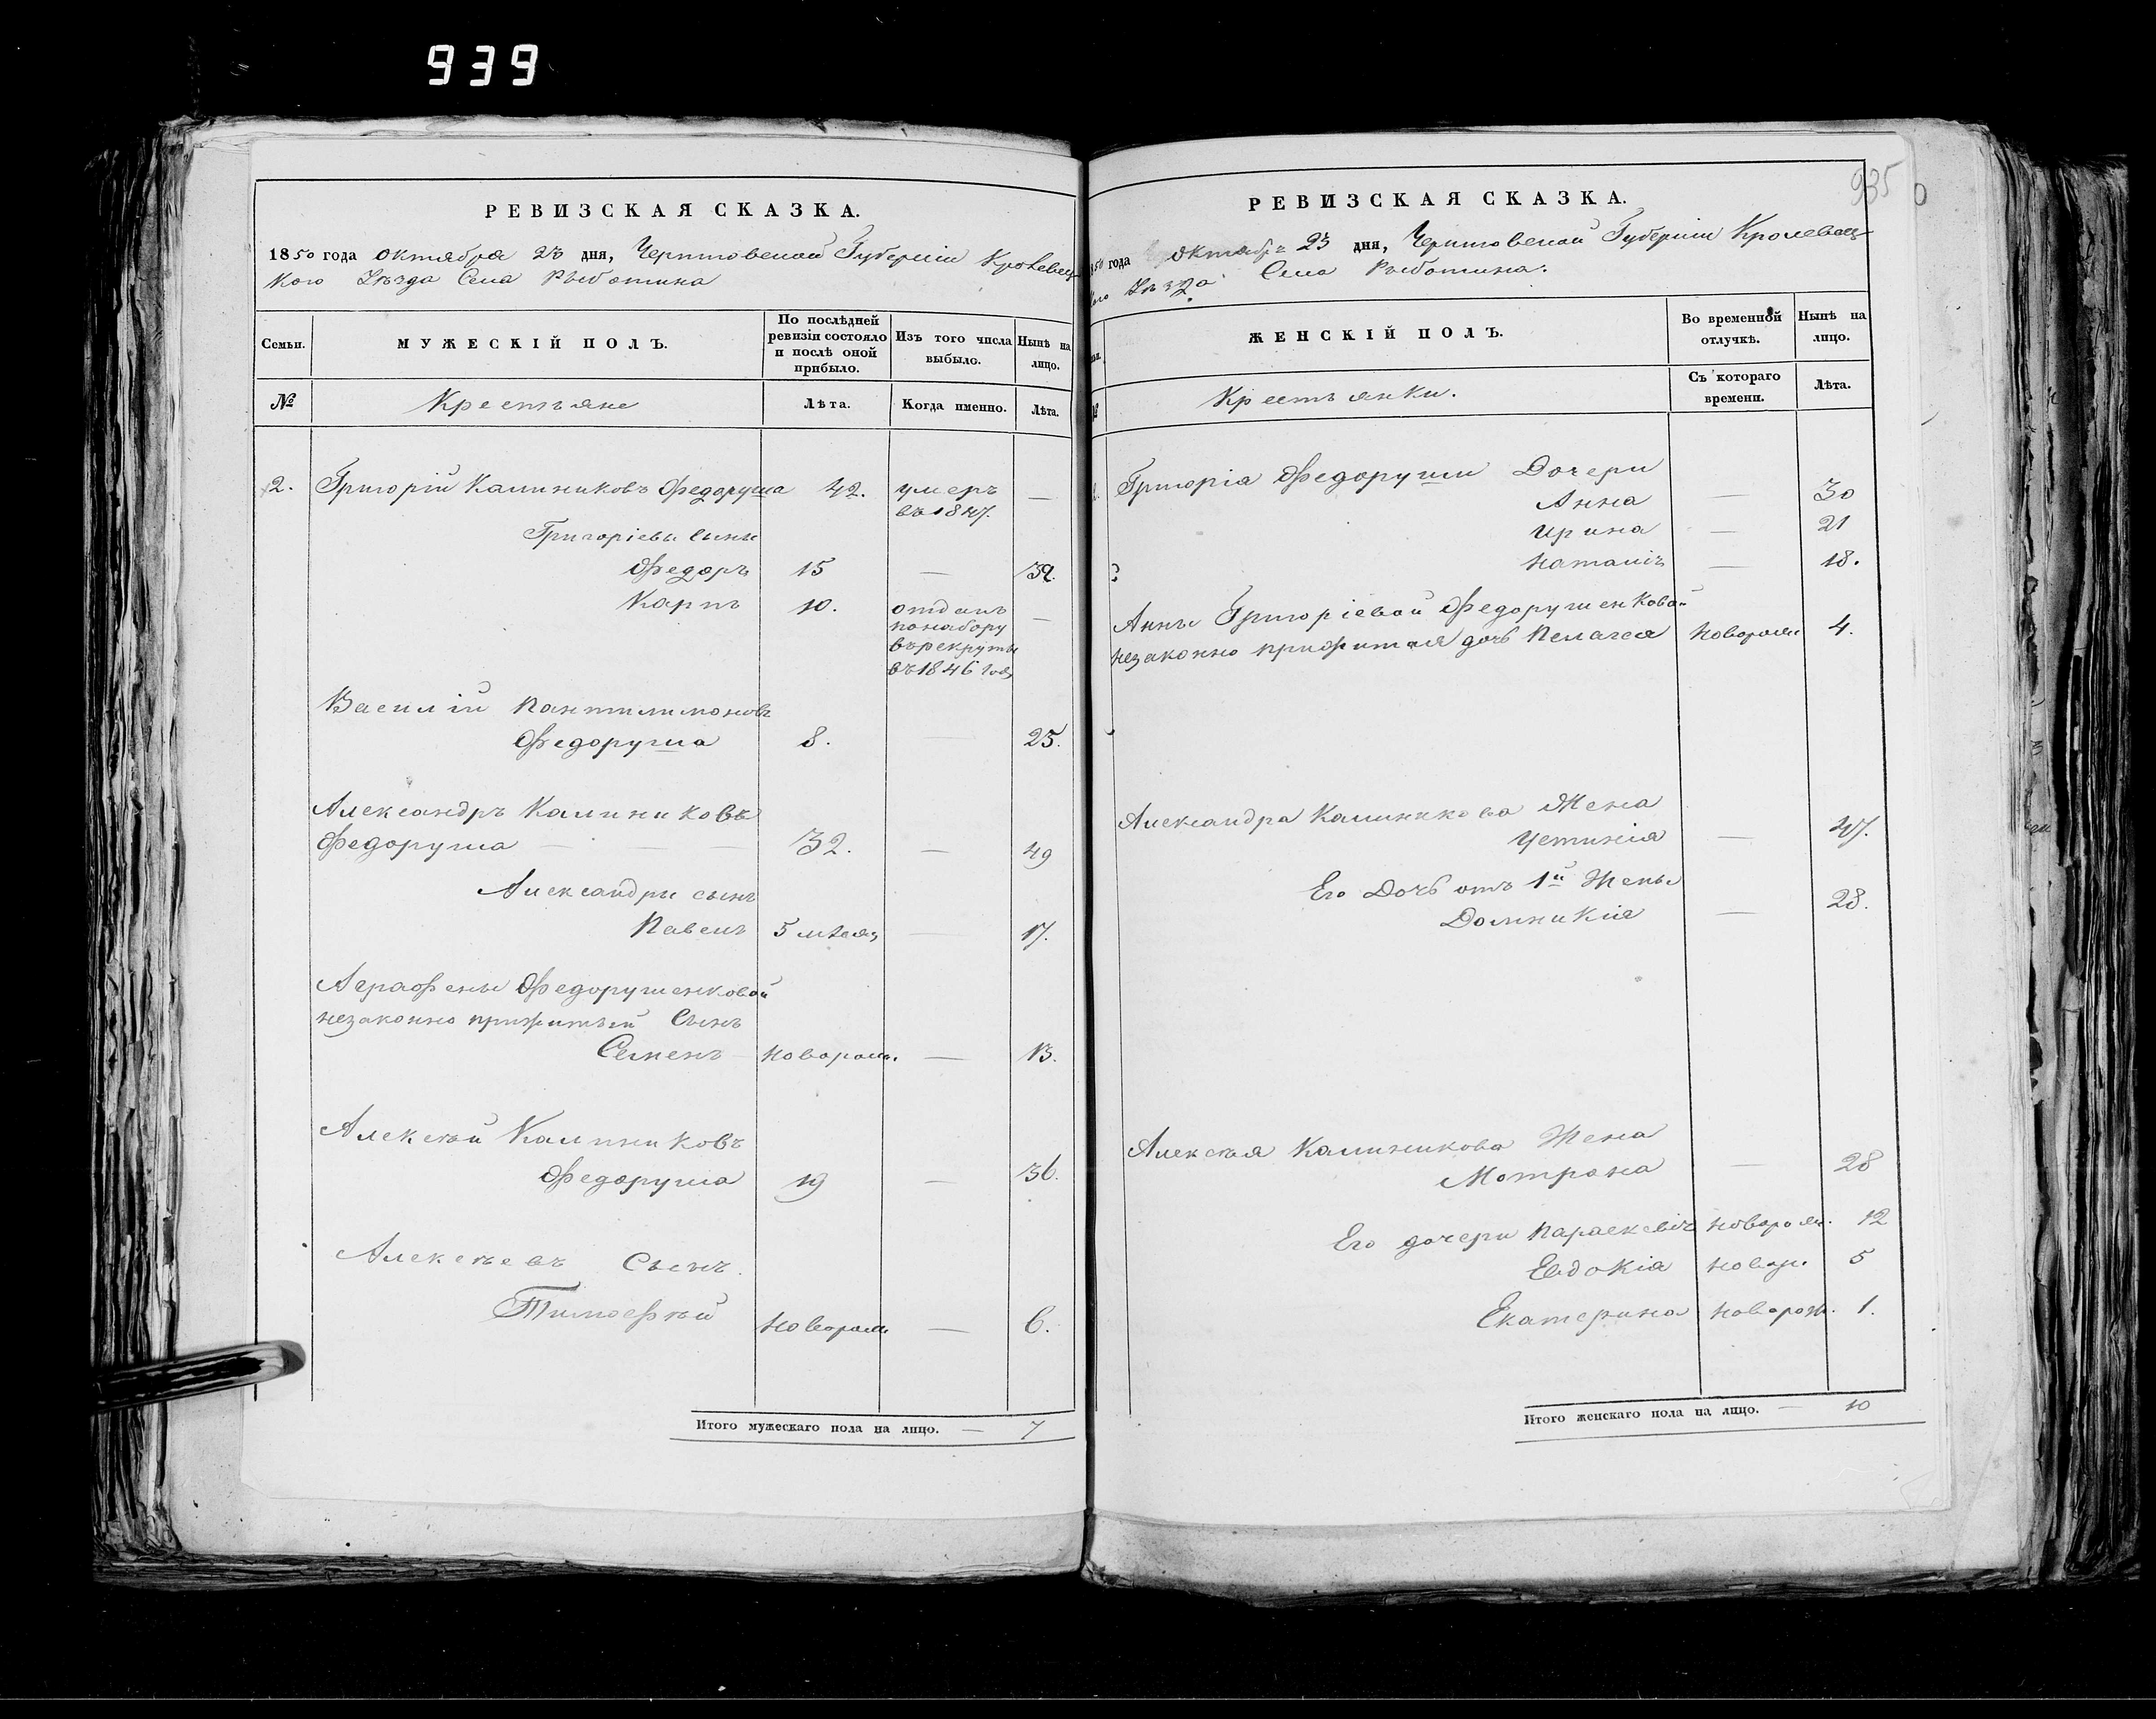 939
РЕВИЗСКАЯ СКАЗКА.
1850 года октября 23 дня, Черниговской Губерніи Кролевец-
кого Уѣзда Села Рыботина
Семьи.
МУЖЕСКІЙ ПОЛЪ.
По послѣдней ревизіи состояло и послѣ оной прибыло.
Изъ того числа выбыло.
Нынѣ на лицо.
№
Крестьяне
Лѣта.
Когда именно.
Лѣта.
2. Григорій Калиниковъ Федоруша 42. умеръ —
въ 1847.
Григоріевы сыны
Федоръ 15 — 32.
Карпъ 10. отданъ —
по набору
въ рекруты
въ 1846 год
Василій Пантилимоновъ
Федоруша 8. — 25.
Александръ Калиниковъ
Федоруша — — — 32. — 49
Александры сынъ
Павелъ 5 мѣсяц — 17.
Аграфены Федорушенковой
незаконно прижитый Сынъ
Семенъ новорож. — 13.
Алексѣй Калиниковъ
Федоруша 19 — 36.
Алексѣевъ Сынъ.
Тимофѣй новорож — 6.
Итого мужескаго пола на лицо. — 7
935
РЕВИЗСКАЯ СКАЗКА.
1850 года Октября 23 дня, Черниговской Губерніи Кролевец-
кого Уѣзда Села Рыботина.
ЖЕНСКІЙ ПОЛЪ.
Во временной отлучкѣ.
Нынѣ на лицо.
Крестьянки.
Съ котораго времени.
Лѣта.
Григорія Федоруши Дочери
Анна — 30
Ирина — 21
Наталія — 18.
Анны Григоріевой Федорушенковой
незаконно прижитая дочь Пелагея новорож 4.
Александра Калиникова Жена
Устинія — 47.
Его Дочь отъ 1й Жены
Домникія — 28.
Алексѣя Калиникова Жена
Мотрона — 28
Его дочери Параскевія новорож. 12
Евдокія новор. 5
Екатерина новорож. 1.
Итого женскаго пола на лицо. — 10